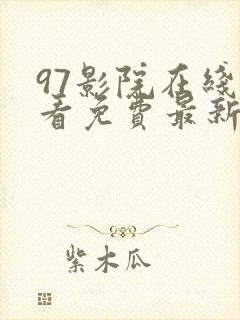 97影院在线
看免费最新
紫木瓜